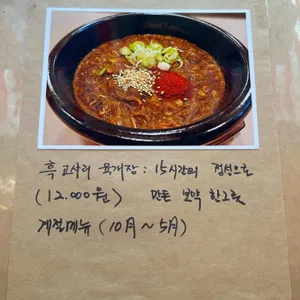 흑 고사리 육개장 : 15시간의 정성으로
(12.000원) 만든 보약 한그릇
계절메뉴 (10月 ~ 5月)